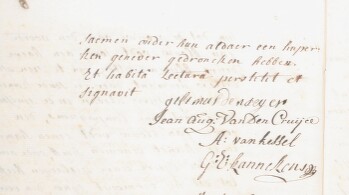 saemen onder hun aldaer een kuper-
ken genever gedroncken hebben
Et habitâ lecturâ perstitit et
signavit
gillemus densoÿer
Jean Aug. VanDen Cruijce
A: vankessel
G: D: Lannekens